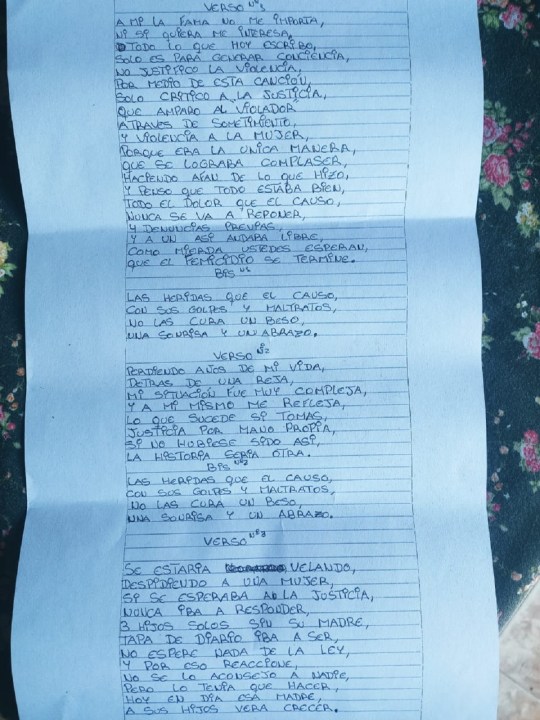 VERSO Nº1
A MI LA FAMA NO ME IMPORTA,
NI SI QUIERA ME INTERESA,
TODO LO QUE HOY ESCRIBO,
SOLO ES PARA GENERAR CONCIENCIA,
NO JUSTIFICO LA VIOLENCIA,
POR MEDIO DE ESTA CANCION,
SOLO CRITICO A LA JUSTICIA,
QUE AMPARO AL VIOLADOR
ATRAVES DE SOMETIMIENTO,
Y VIOLENCIA A LA MUJER,
PORQUE ERA LA UNICA MANERA,
QUE SE LOGRABA COMPLASER,
HACIENDO AFAN DE LO QUE HIZO,
Y PENSO QUE TODO ESTABA BIEN,
TODO EL DOLOR QUE EL CAUSO,
NUNCA SE VA A REPONER,
4 DENUNCIAS PREVIAS,
Y A UN ASI ANDABA LIBRE,
COMO MIERDA USTEDES ESPERAN,
QUE EL FEMICIDIO SE TERMINE.
BIS Nº1
LAS HERIDAS QUE EL CAUSO,
CON SUS GOLPES Y MALTRATOS,
NO LAS CURA UN BESO,
UNA SONRISA Y UN ABRAZO.
VERSO Nº2
PERDIENDO AÑOS DE MI VIDA,
DETRAS DE UNA REJA,
MI SITUACION FUE MUY COMPLEJA,
Y A MI MISMO ME REFLEJA,
LO QUE SUCEDE SI TOMAS,
JUSTICIA POR MANO PROPIA,
SI NO HUBIESE SIDO ASI,
LA HISTORIA SERIA OTRA.
BIS Nº2
LAS HERIDAS QUE EL CAUSO,
CON SUS GOLPES Y MALTRATOS,
NO LAS CURA UN BESO,
UNA SONRISA Y UN ABRAZO.
VERSO Nº3
SE ESTARIA VELANDO,
DESPIDIENDO A UNA MUJER,
SI SE ESPERABA A LA JUSTICIA,
NUNCA IBA A RESPONDER,
3 HIJOS SOLOS SIN SU MADRE,
TAPA DE DIARIO IBA A SER,
NO ESPERE NADA DE LA LEY,
Y POR ESO REACCIONE,
NO SE LO ACONSEJO A NADIE,
PERO LO TENIA QUE HACER,
HOY EN DIA ESA MADRE,
A SUS HIJOS VERA CRECER.